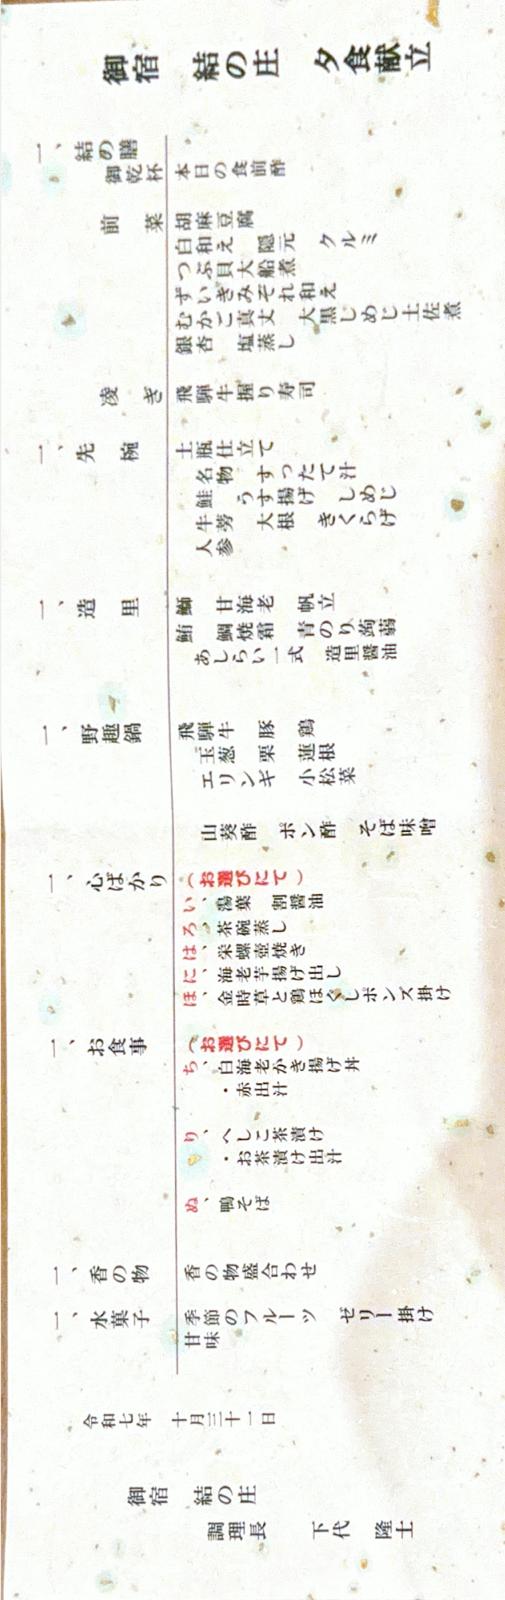 御宿 結の庄 夕食献立
一、結の膳
御乾杯 本日の食前酢
前菜 胡麻豆腐
白和え 隠元 クルミ
つぶ貝大船煮
ずいきみぞれ和え
むかご真丈 大黒しめじ土佐煮
銀杏 塩蒸し
凌ぎ 飛騨牛握り寿司
一、先椀 土瓶仕立て
名物 すったて汁
鮭 うす揚げ しめじ
牛蒡 大根 きくらげ
人参
一、造里 鰤 甘海老 帆立
鮪 鯛焼霜 青のり蒟蒻
あしらい一式 造里醤油
一、野趣鍋 飛騨牛 豚 鶏
玉葱 栗 蓮根
エリンギ 小松菜
山葵酢 ポン酢 そば味噌
一、心ばかり (お選びにて)
い、湯葉 割醤油
ろ、茶碗蒸し
は、栄螺壺焼き
に、海老芋揚げ出し
ほ、金時草と鶏ほぐしポンズ掛け
一、お食事 (お選びにて)
ち、白海老かき揚げ丼
・赤出汁
り、へしこ茶漬け
・お茶漬け出汁
ぬ、鴨そば
一、香の物 香の物盛合わせ
一、水菓子 季節のフルーツ ゼリー掛け
甘味
令和七年 十月三十一日
御宿 結の庄
調理長 下代 隆士